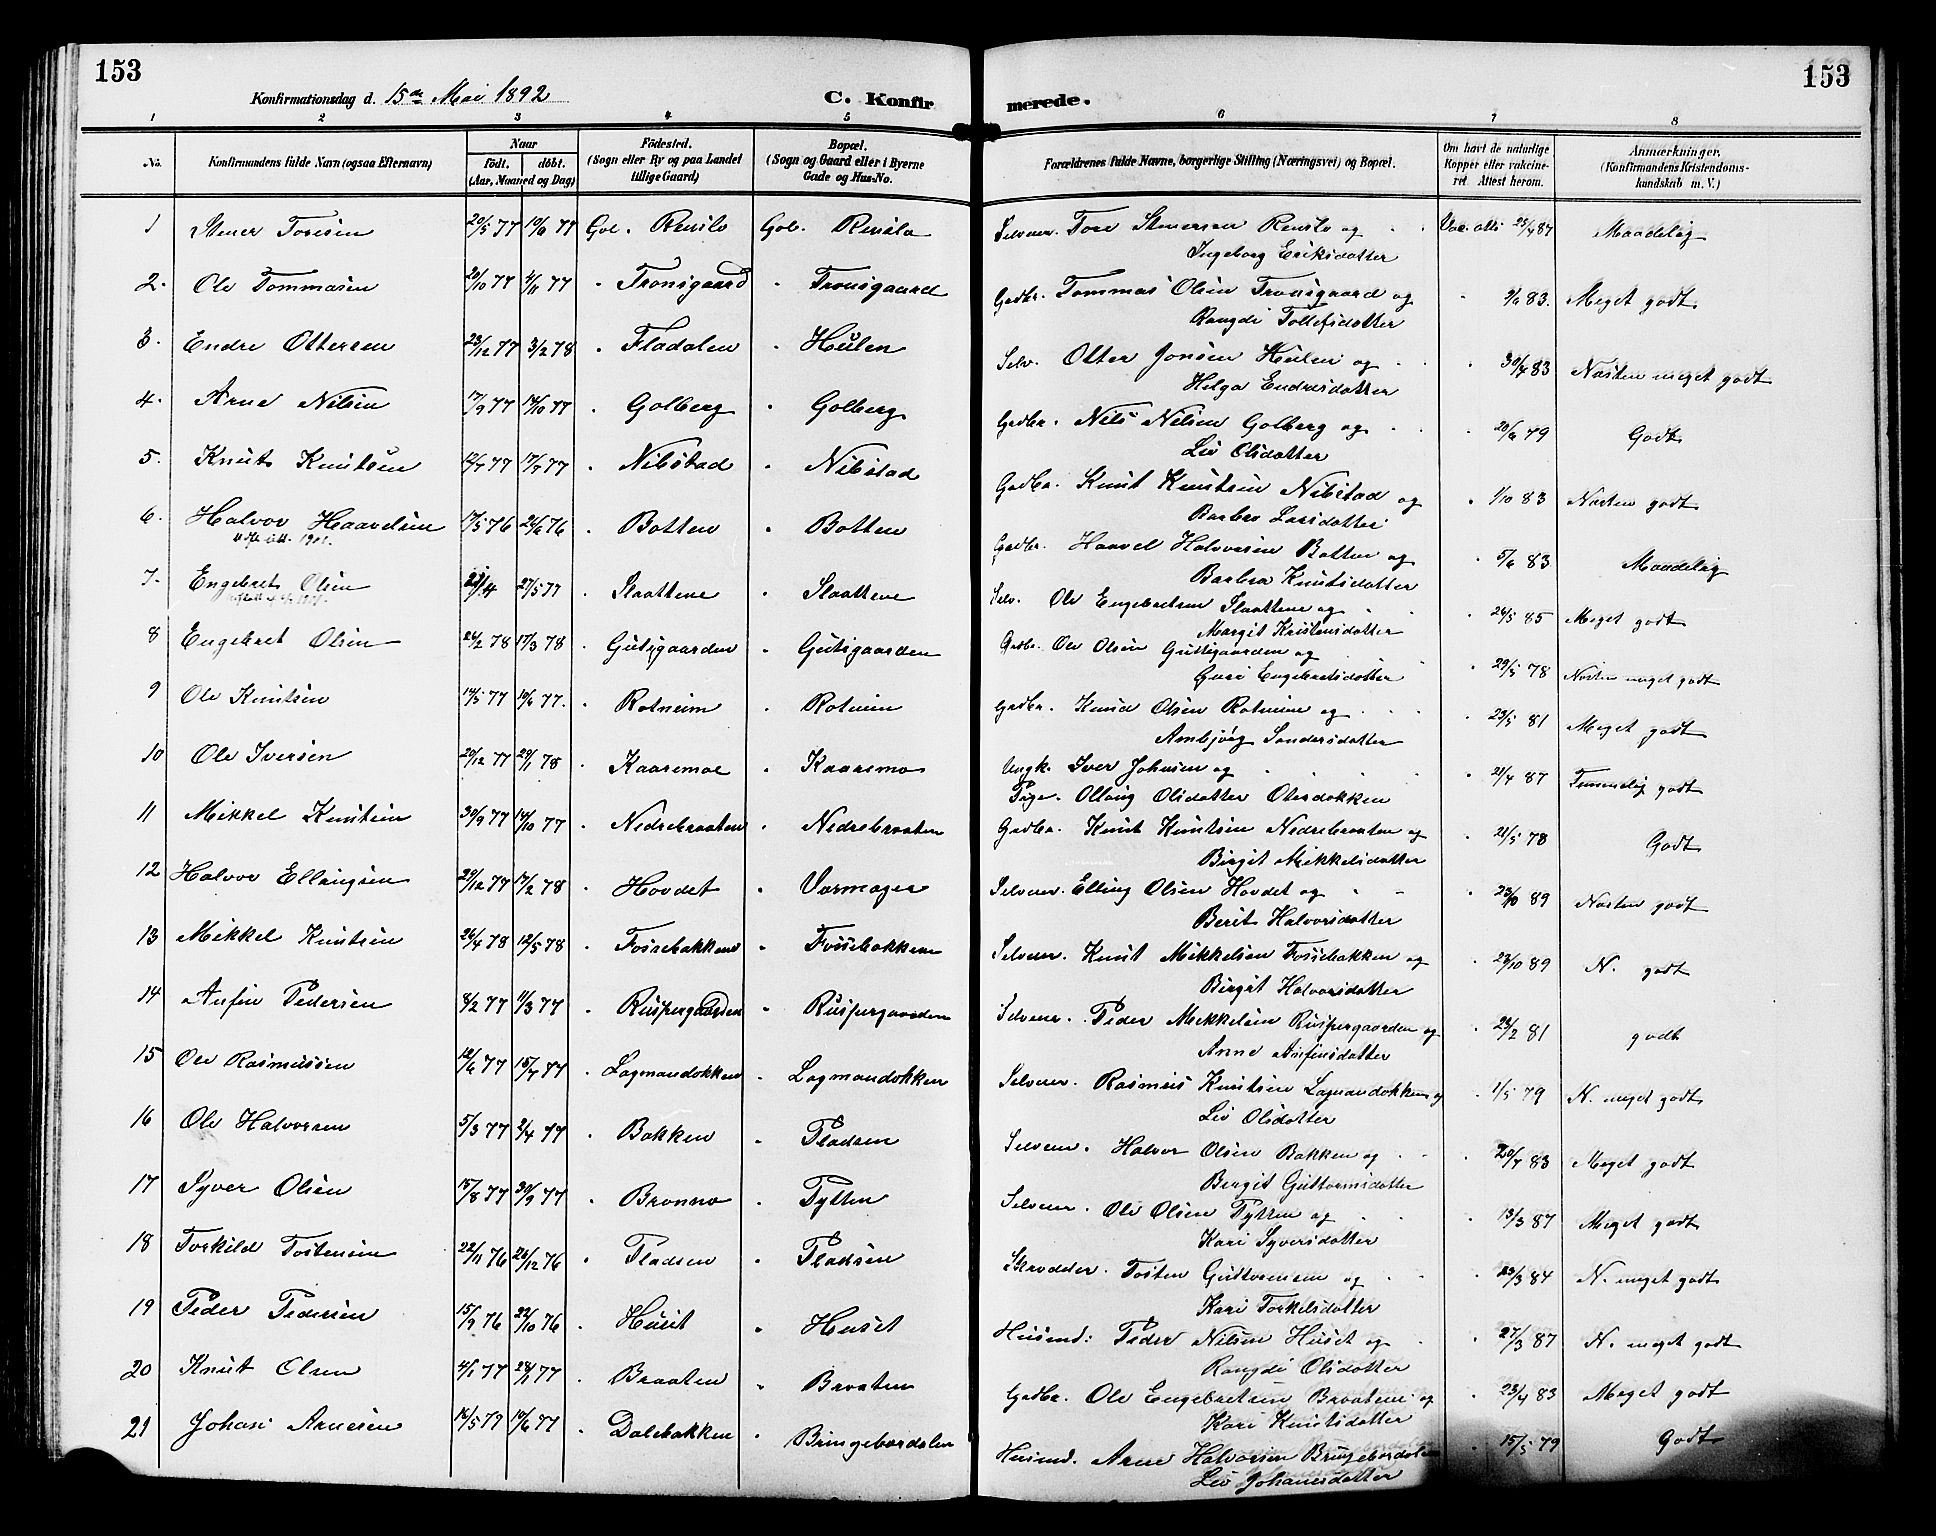 153
153
Konfirmationsdag d. 15de Mai 1892
C. Konfir
merede.
1 2 3 4 5 6 7 8
No. Konfirmandens fulde Navn (ogsaa Efternavn) Naar Födested. Bopæl. Forældrenes fulde Navne, borgerlige Stilling (Næringsvei) og Bopæl. Om havt de naturlige Anmærkninger.
födt. döbt. (Sogn eller By og paa Landet (Sogn og Gaard eller i Byerne Kopper eller vakcine- (Konfirmandens Kristendoms-
(Aar, Maaned og Dag) tillige Gaard) Gade og Hus-No. ret. Attest herom. kundskab m. V.)
1 Stener Toresen 20/5 77 10/6 77 Gol. Renslo Gol. Renslo Selveier. Tore Stenersen Renslo og Vac. att. 25/4 87 Maadelig
Ingeborg Eriksdatter
2. Ole Tommasen 20/10 77 4/11 77 " Tronsgaard " Tronsgaard Gadbr. Tommas Olsen Tronsgaard og " 9/6 83. Meget godt
Rangdi Tollefsdatter
3. Endre Ottersen 23/12 77 3/2 78 " Fladalen " Heulen Selv. Otter Jonsen Heulen og " 30/4 83 Næsten meget godt
Helga Endresdatter
4. Arne Nilsen 17/9 77 14/10 77 " Golberg " Golberg Gadbr. Nils Nilsen Golberg og " 20/6 79 Godt
Liv Olsdatter
5. Knut Knutsen 12/7 77 17/7 77 " Nibstad " Nibstad Gadbr. Knut Knutsen Nibstad og " 1/10 83 Næsten godt
Barbro Larsdatter
6. Halvor Haavelsen 17/5 76 24/6 76 " Botten " Botten Gadbr. Haavel Halvorsen Botten og " 5/6 83 Maadelig
Barbra Knutsdatter
7. Engebret Olsen 27/5 77 " Slaattene " Slaattene Selv. Ole Engebretsen Slaattene og " 24/5 85 Meget godt
Margit Kristensdatter
8 Engebret Olsen 24/2 78 17/3 78 " Gutsgaarden " Gutsgaarden Gadbr. Ole Olsen Guttsgaarden og " 29/5 78 Næsten meget godt
Guri Engebretsdatter
9 Ole Knutsen 14/5 77 10/6 77. " Rotneim " Rotneim Gadbr. Knud Olsen Rotneim og " 23/5 81 Meget godt
Ambjørg Sandersdatter
10 Ole Iversen 20/12 77 29/1 78 " Kaarsmoe " Kaarsmo Ungk. Iver Johnsen og " 21/4 87 Temmelig godt
Pige. Ollaug Olsdatter Olesdokken
11 Mikkel Knutsen 30/9 77 14/10 77 " Nedrebraaten " Nedrebraaten Gadbr. Knut Knutsen Nedrebraaten og " 21/5 78 Godt
Birgit Mikkelsdatter
12 Halvor Ellingsen 29/12 77 17/2 78 " Hovdet " Vermager Selveier. Elling Olsen Hovdet og " 23/10 89 Næsten godt
Berit Halvorsdatter
13 Mikkel Knutsen 26/4 78 12/5 78 " Fossebakkene " Fossebakkene Selveier. Knut Mikkelsen Fossebakken og " 23/10 89 N. godt
Birgit Halvorsdatter
14 Anfin Pedersen 8/2 77 11/3 77 " Ruspergaarden " Ruspergaarden Selveier. Peder Mikkelsen Ruspergaarden og " 23/2 81 godt
Anne Anfinsdatter
15 Ole Rasmussen 12/6 77 15/7 77 " Lagmandokken " Lagmandokken Selveier. Rasmus Knutsen Lagmandokken og " 1/5 79 N. meget godt
Liv Olsdatter
16 Ole Halvorsen 5/3 77 2/4 77 " Bakken " Pladsen Selveier. Halvor Olsen Bakken og " 20/7 83 Meget godt
Birgit Guttormsdatter
17 Syver Olsen 15/8 77 30/9 77 " Brenno " Pytten Selveier. Ole Olsen Pytten og " 13/3 87 Meget godt
Kari Syversdatter
18 Torkild Tostensen 22/11 76 26/12 76 " Pladsen " Pladsen Skrædder. Tosten Guttormsen og " 23/3 84 N. meget godt
Kari Torkelsdatter
19 Peder Pedersen 15/9 76 22/10 76 " Huset " Huset Husmd: Peder Nilsen Huset og " 27/3 87 N. meget godt
Rangdi Olsdatter
20 Knut Olsen 4/1 77 28/1 77 " Braaten " Braaten Gadbr. Ole Engebretsen Braatene og " 23/4 83 Meget godt
Kari Knutsdatter
21 Johans Arnesen 16/5 77 10/6 77 " Dalebakken " Bringebærdalen Husmd. Arne Halvorsen Bringebærdalen " 15/5 79 Godt
Liv Johannesdatter